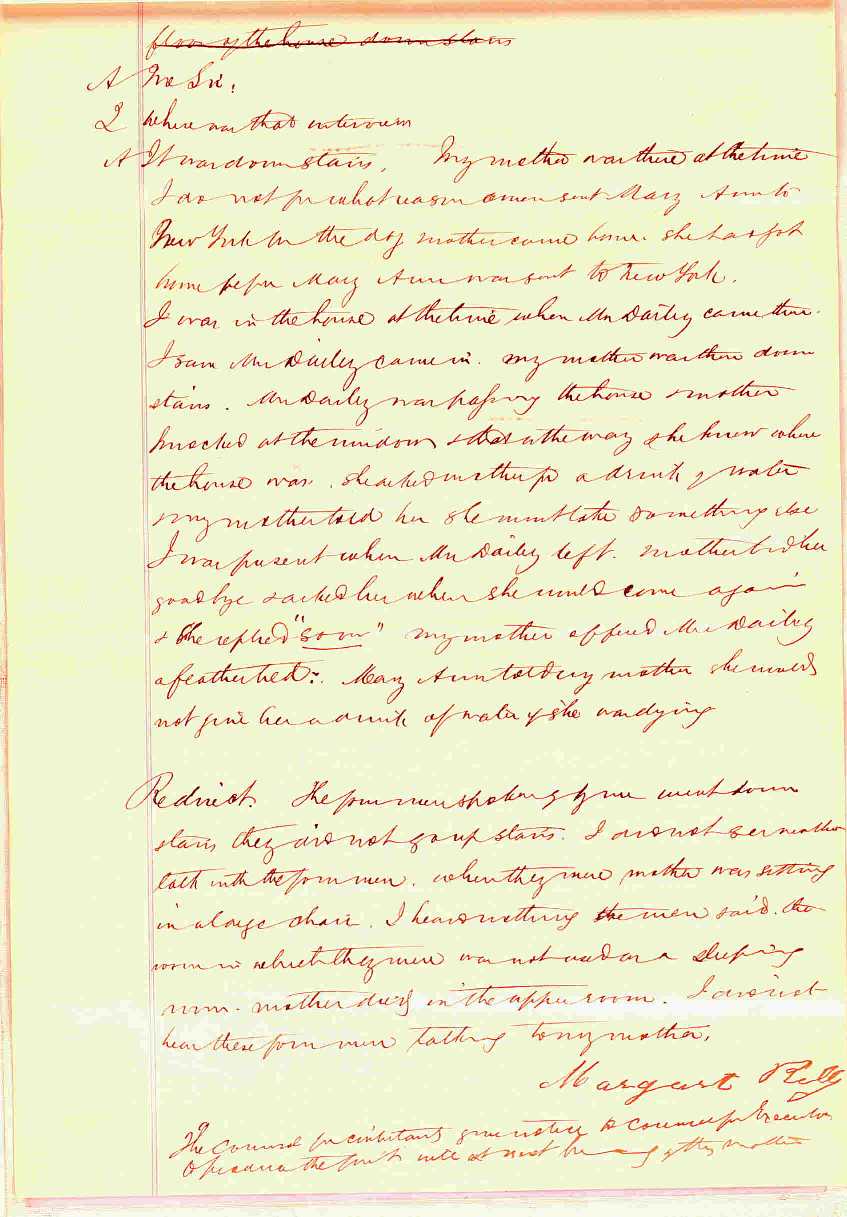 floor of the house down stairs
A No Sir.
Q Where was that interview
A It was down stairs. My mother was there at the time
I do not for what reason Owen sent Mary Ann to
New York for the day mother came home. she had got
home before Mary Ann was sent to New York.
I was in the house at the time when Mrs Dailey came there.
I saw Mrs Dailey come in. my mother was then down
stairs. Mrs Dailey was passing the house & mother
knocked at the window & that is the way she knew where
the house was. she asked mother for a drink of water
& my mother told her she must take something else
I was present when Mrs Dailey left. mother bid her
goodbye & asked her when she would come again
& she replied "soon" my mother offered Mrs Dailey
a feather bed. Mary Ann told my mother she would
not give her a drink of water if she was dying
Redirect. The four men spoken of by me went down
stairs they did not go up stairs. I did not see mother
talk with the four men. when they were mother was sitting
in a large chair. I heard nothing the men said. the
room in which they were was not used as a sleeping
room. mother died in the upper room. I did not
hear these four men talking to my mother.
Margaret Rilly
The Counsel for contestants gave notice to Counsel for Executor
to produce the at next hearing of this matter